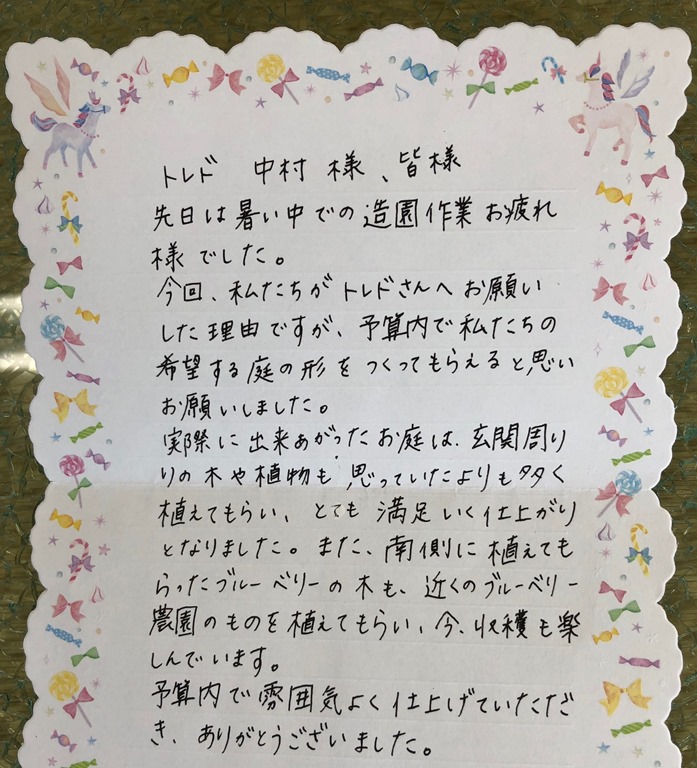 トレド 中村様、皆様
先日は暑い中での造園作業お疲れ
様でした。
今回、私たちがトレドさんへお願い
した理由ですが、予算内で私たちの
希望する庭の形をつくってもらえると思い
お願いしました。
実際に出来あがったお庭は、玄関周り
りの木や植物も思っていたよりも多く
植えてもらい、とても満足いく仕上がり
となりました。また、南側に植えても
らったブルーベリーの木も、近くのブルーベリー
農園のものを植えてもらい、今、収穫も楽
しんでいます。
予算内で雰囲気よく仕上げていただ
き、ありがとうございました。